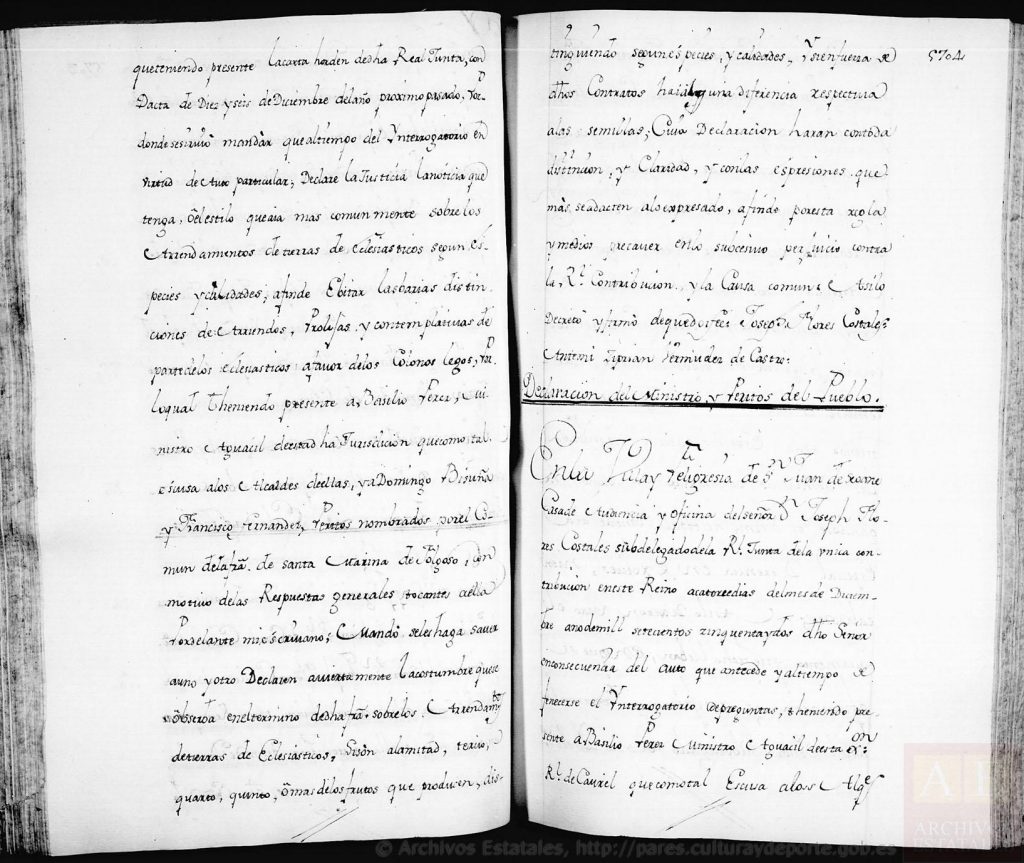 que teniendo presente la carta horden de dha Real Junta, con
Dacta de Diez y seis de Diciembre del año proximo pasado, por
donde se sirvio mandàr que al tiempo del Ynterrogatorio en
virtud de Auto particular, Declare la Justicia la noticia que
tenga, ò el estilo que aia mas comunmente sobre los
Arrendamientos de tierras de eclesiasticos segun es-
pecies y calidades, afin de Ebitar las barias distin-
ciones de Arriendos, Prolijas, y contemplativas de
parte de los eclesiasticos afavor de los Colonos legos, por
lo qual theniendo presente a Basilio Perez, Mi-
nistro Aguacil de esta dha Jurisdicion que como tal
escusa a los Alcaldes de ellas, y a Domingo Bisuña
y Francisco Fernandez, Peritos nombrados por el Co-
mun de la fra. de santa Marina de Folgoso, con
motivo de las Respuestas generales tocantes a ella
Por delante mi escrivano; Mando se les haga saver
a uno y otro Declaren aviertamente la costumbre que se
òbserva en el termino de dha fra. sobre los Arrendamtos
de tierras de Eclesiasticos, Si son alamitad, tercio,
quarto, quinto, ò mas de los frutos que producen, dis-
tinguiendo segun espècies, y calidades, Y si en fuerza de
dhos Contratos hai alguna diferencia respectiva
a las semillas; Cuia Declaracion haran con toda
distincion, y Claridad, y con las expresiones que
màs se adacten alo expresado, afin de por esta regla
y medios precaver en lo subcesivo perjuicio contra
la Rl. Contribucion, y la Causa comun: Asilo
Decretò y firmò de que doy fee: Joseph Flores Costales
Antemi Ziprian Vermudez de Castro:
Declaracion del Ministro, y Peritos del Pueblo.
En la Villa y feligresia de Sn. Juan de Seoane
Casa de Audiencia y Oficina del señor Dn. Joseph Flo-
res Costales subdelegado de la Rl. Junta de la vnica con-
tribucion en este Reino a catorce dias del mes de Diciem-
bre ano de mill setecientos zinquenta y dos dho Señor
en consecuencia del auto que antecede y al tiempo de
fenecerse el Ynterrogatorio de preguntas, theniendo pre-
sente a Basilio Perez Ministro Aguacil de esta
Rl. de Caurel que como tal Escusa a los
5704
ARCHIVOS
ESTATALES
© Archivos Estatales, http://pares.culturaydeporte.gob.es